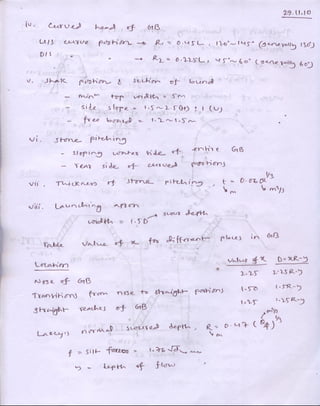 29.11.10
iv. Curved head of GB
U/S curve portion → R₁ = 0.45L, 120°~145° (generally 130°)
D/S " → R₂ = 0.225L, 45°~60° (generally 60°)
v. Shank portion & section of bund
- minᵐ top width = 5m
- side slope = 1.5~2.5(H) : 1 (V)
- free board = 1.2~1.5m
vi. Stone pitching
- sloping water side of entire GB
- rear side of curved portions
vii. Thickness of stone pitching, t = 0.06 Q^1/3
m m³/s
viii. Launching apron
width = 1.5D → scour depth
Table Value of x for different places in GB
Location Value of x D=xR-y
Nose of GB 2.25 2.25R-y
Transitions from nose to straight portions 1.50 1.5R-y
Straight reaches of GB 1.25 1.25R-y
Lacey's normal scoured depth, R = 0.47 (Q/f)^1/3
m m³/s
f = silt = 1.76√d mm
y = depth of flow